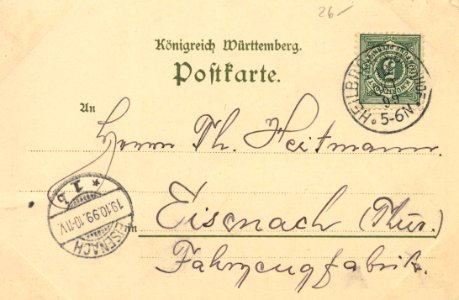 26-
Königreich Württemberg.
Postkarte.
HEILBRONN
99
5-6N
An
Herrn Th. Heitmann.
in
Eisenach (Thür.)
Fahrzeugfabrik.
EISENACH
19.10.99.10-11V.
* 1 b